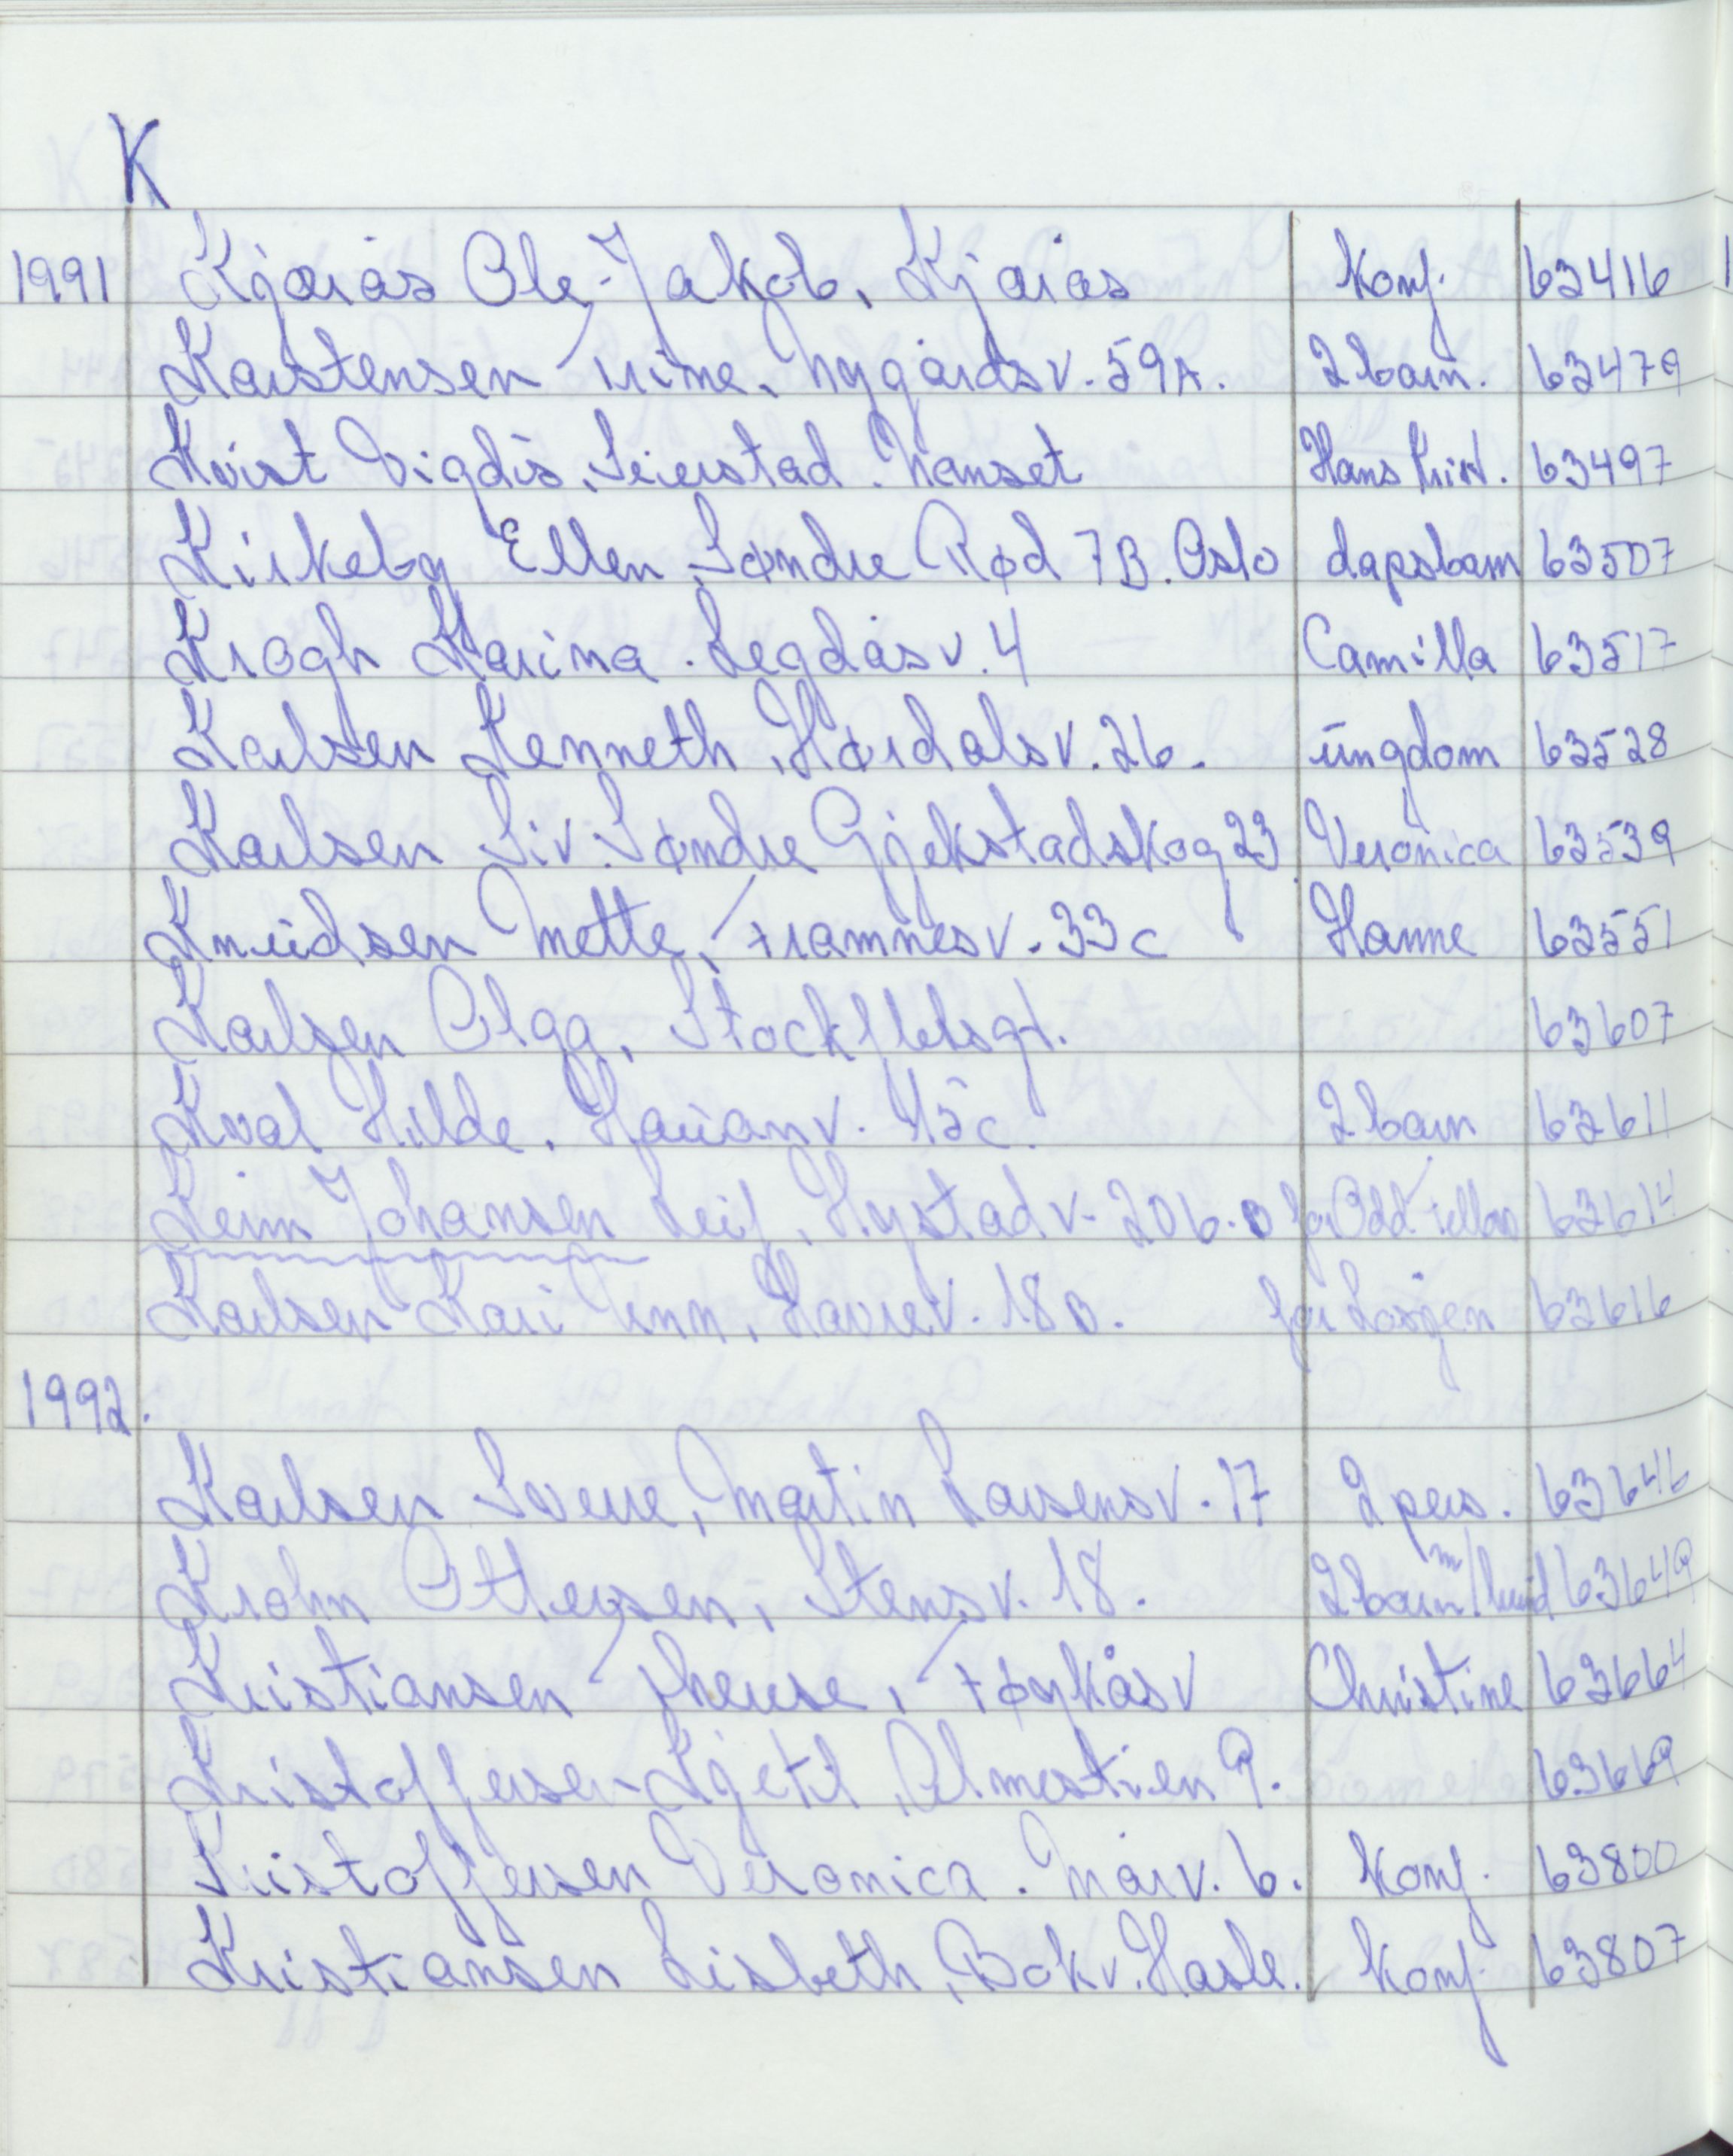 K
1991 Kjærås Ole-Jakob, Kjærås Konf. 63416
Karstensen Trine, Nygårdsv. 59A. 2 barn. 63479
Kvist Vigdis, Seierstad. Vanset Hans Krist. 63497
Kirkeby Ellen, Søndre Rød 7B. Oslo dåpsbarn 63507
Krogh Karina. Legdåsv. 4 Camilla 63517
Karlsen Kenneth, Hørdalsv. 26. ungdom 63528
Karlsen Siv. Søndre Gjekstadskog 23 Veronica 63539
Knudsen Mette, Framnesv. 33c Hanne 63551
Karlsen Olga, Stockflethsgt. 63607
Kval Hilde. Hauanv. 45c. 2 barn 63611
Leinn Johansen Leif, Hystadv. 206. D for Odd Fellow 63614
Karlsen Kari Unn, Haurev. 18D. for Losjen 63616
1992.
Karlsen Sverre, Martin Larsensv. 17 2 pers. 63646
Krohn Ottersen, Stensv. 18. 2 barn m/hund 63649
Kristiansen Therese, Tørkåsv Christine 63664
Kristoffersen Kjetil, Almestien 9. 63669
Kristoffersen Veronica. Mårv. 6. Konf. 63800
Kristiansen Lisbeth, Bokv. Hasle. Konf. 63807